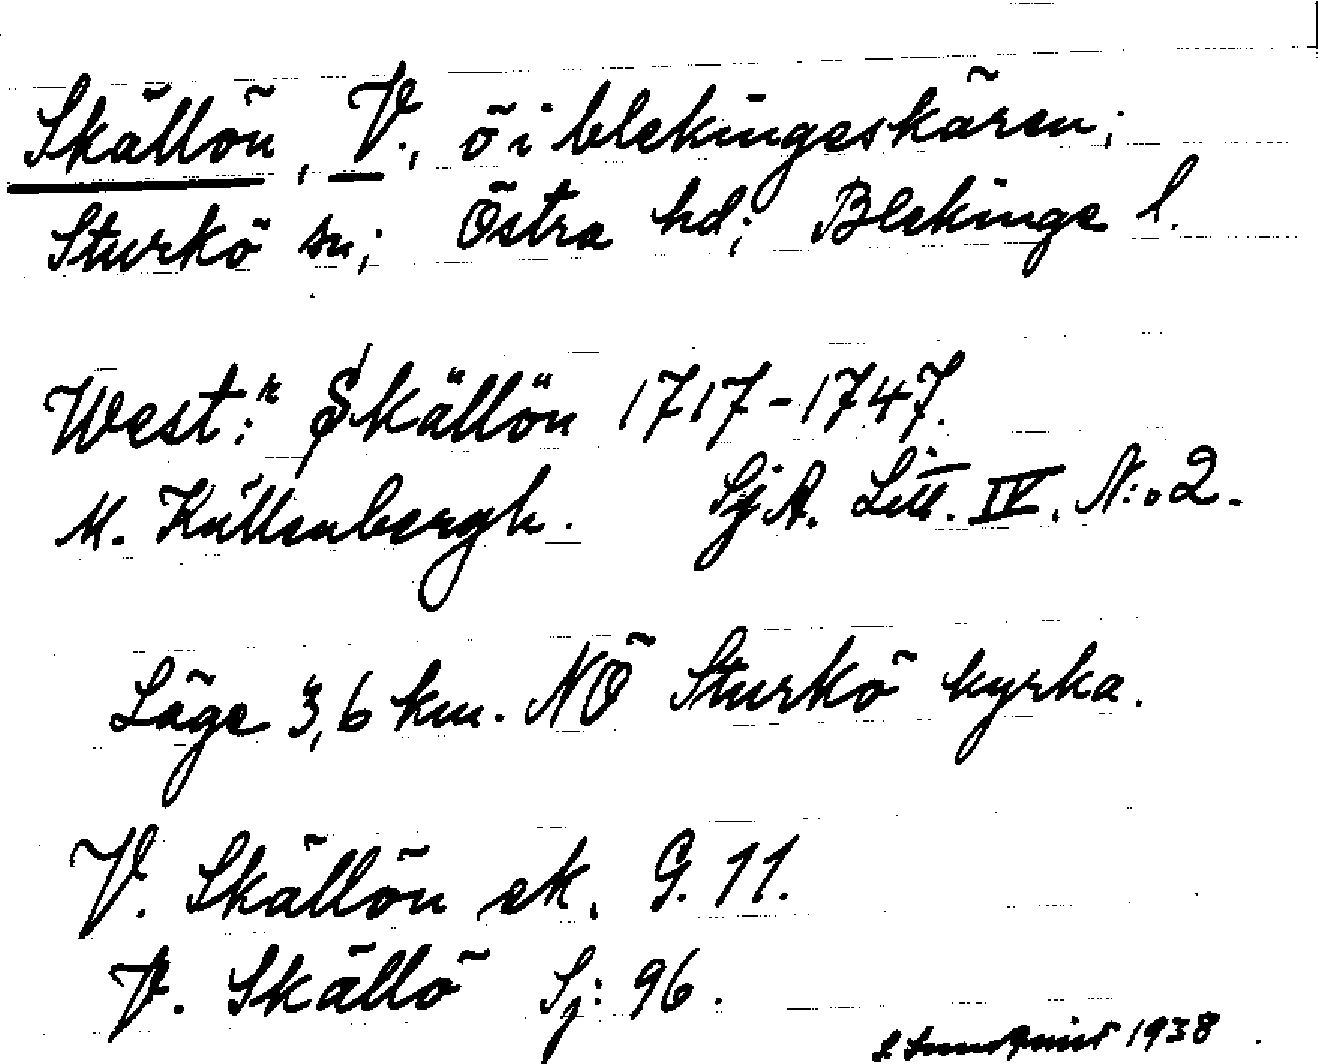 Skällön, V., ö i blekingeskären;
Sturkö sn; Östra hd; Blekinge l.
West:r Skällön 1717-1747.
M. Küllenbergh. SjA. Litt. IV. N:o 2.
Läge 3,6 km. NÖ Sturkö kyrka.
V. Skällön ek. G. 11.
V. Skällö Sj: 96.
1938